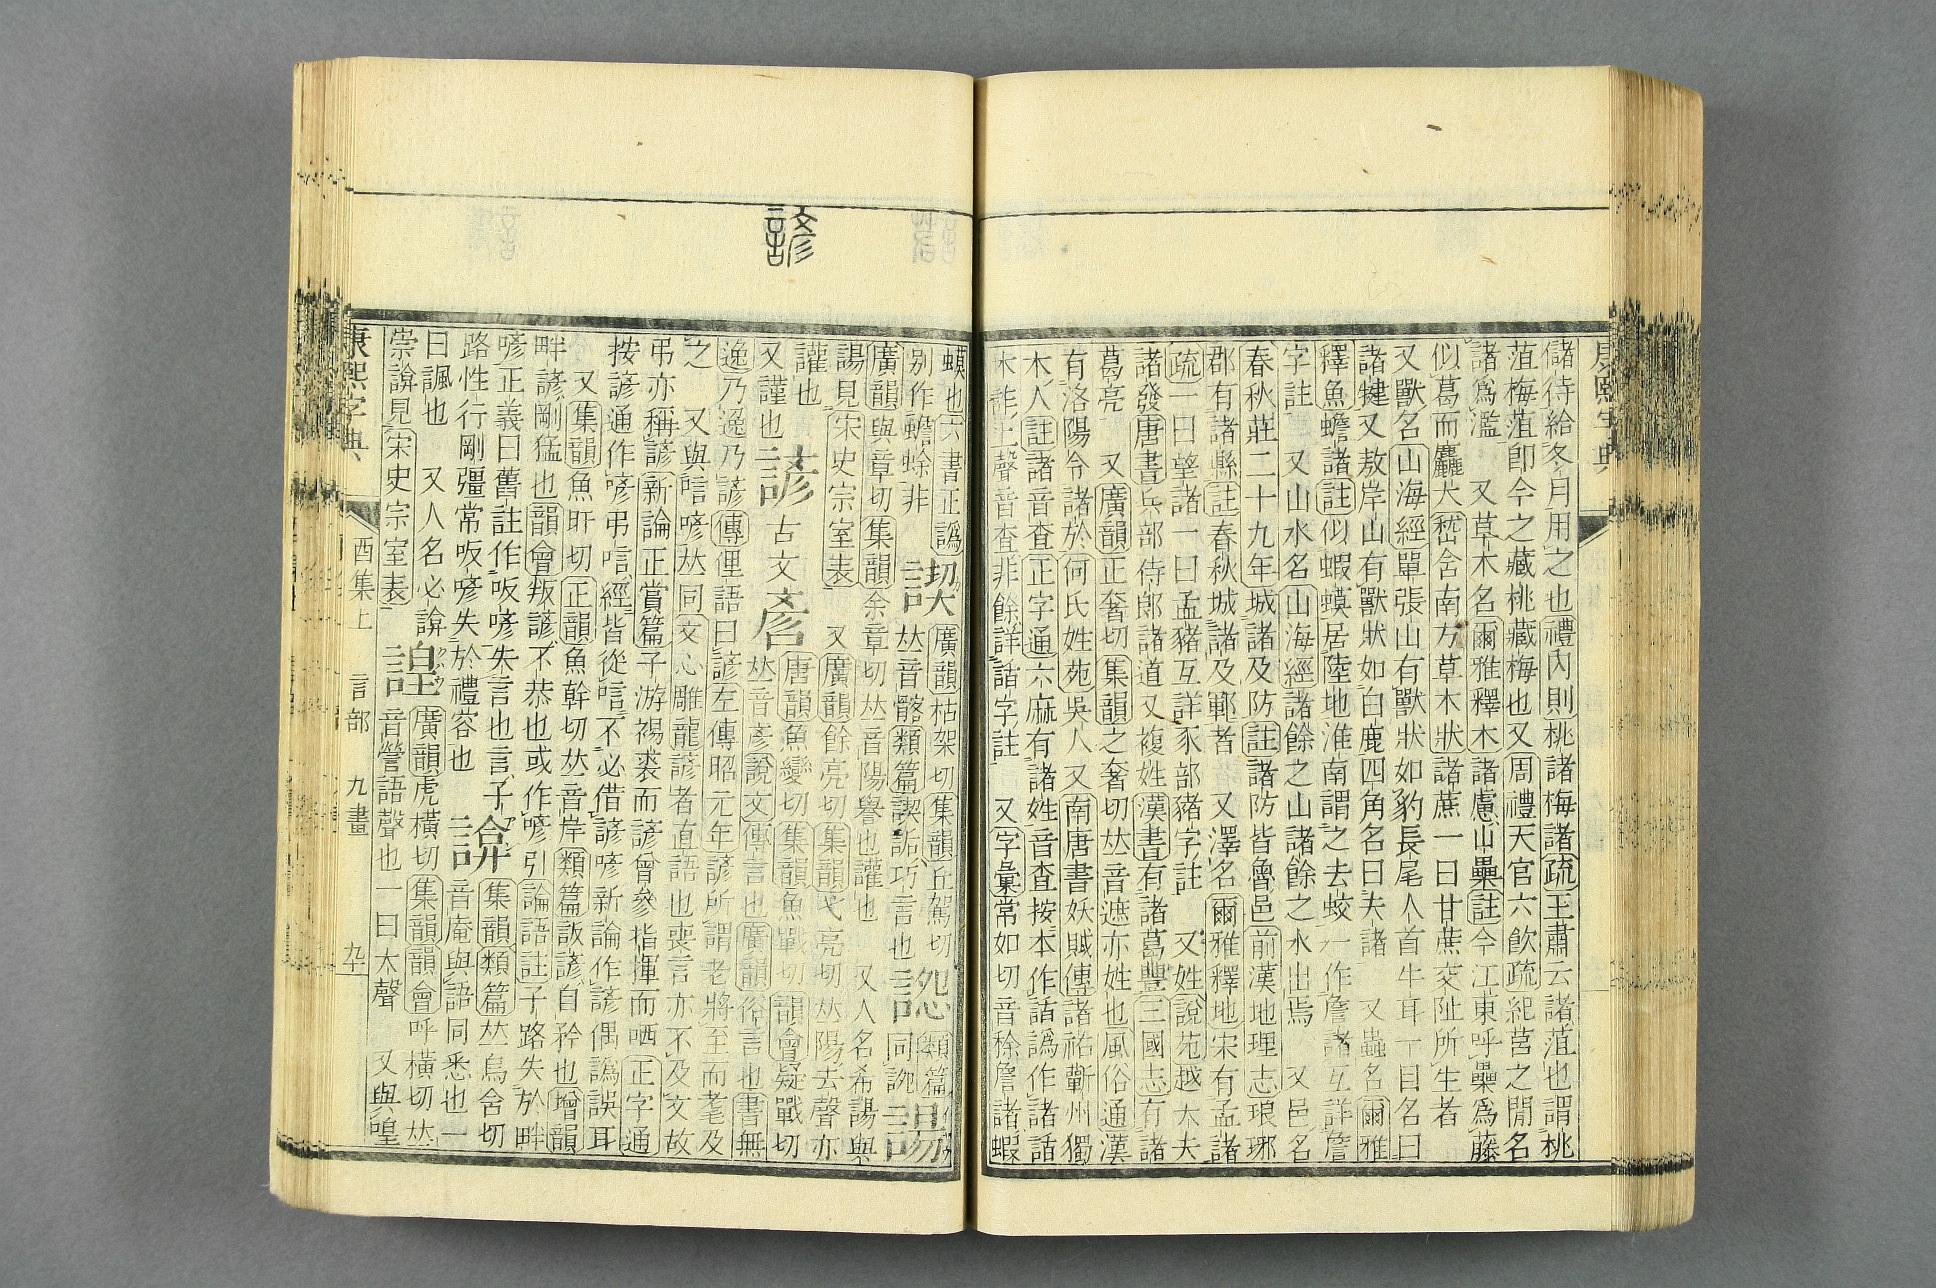 康熙字典
儲待給冬月用之也禮內則桃諸梅諸疏王肅云諸菹也謂桃
菹梅菹卽今之藏桃藏梅也又周禮天官六飮疏紀莒之閒名
諸爲濫　又草木名爾雅釋木諸慮山櫐註今江東呼櫐爲藤
似葛而麤大嵇含南方草木狀諸蔗一曰甘蔗交阯所生者
又獸名山海經單張山有獸狀如豹長尾人首牛耳一目名曰
諸犍又敖岸山有獸狀如白鹿四角名曰夫諸　又蟲名爾雅
釋魚蟾諸註似蝦蟆居陸地淮南謂之去蚁一作詹諸互詳詹
字註　又山水名山海經諸餘之山諸餘之水出焉　又邑名
春秋莊二十九年城諸及防註諸防皆魯邑前漢地理志琅琊
郡有諸縣註春秋城諸及鄆者　又澤名爾雅釋地宋有孟諸
疏一曰望諸一曰孟豬互詳豕部豬字註　又姓說苑越大夫
諸發唐書兵部侍郎諸道又複姓漢書有諸葛豐三國志有諸
葛亮　又廣韻正奢切集韻之奢切𠀤音遮亦姓也風俗通漢
有洛陽令諸於何氏姓苑吳人又南唐書妖賊傳諸祐蘄州獨
木人註諸音查正字通六麻有諸姓音查按本作䛽譌作諸䛽
木詐上聲音査非餘詳䛽字註　又字彙常如切音梌詹諸蝦
蟆也六書正譌
别作蟾蜍非　䛟廣韻枯架切集韻丘駕切
𠀤音髂類篇䛟詬巧言也　䛼類篇
同諰　諹
廣韻與章切集韻余章切𠀤音陽譽也讙也　又人名希諹與
諹見宋史宗室表　又廣韻餘亮切集韻弋亮切𠀤陽去聲亦
讙也
又謹也　諺古文𧥢唐韻魚變切集韻魚戰切韻會疑戰切
𠀤音彥說文傳言也廣韻俗言也書無
逸乃逸乃諺傳俚語曰諺左傳昭元年諺所謂老將至而耄及
之　又與唁喭𠀤同文心雕龍諺者直語也喪言亦不及文故
弔亦稱諺新論正賞篇子游裼裘而諺曾參指揮而哂正字通
按諺通作喭弔唁經皆從唁不必借諺喭新論作諺偶譌誤耳
又集韻魚旰切正韻魚幹切𠀤音岸類篇詖諺自矜也增韻
畔諺剛猛也韻會叛諺不恭也或作喭引論語註子路失於畔
喭正義曰舊註作㕫喭失言也言子
路性行剛彊常㕫喭失於禮容也　䛳集韻類篇𠀤烏含切
音庵與諳同悉也一
曰諷也　又人名必䛳
崇䛳見宋史宗室表　諻廣韻虎橫切集韻韻會呼橫切𠀤
音諻語聲也一曰大聲　又與喤
康熙字典　酉集上　言部　九畫　九十
諺